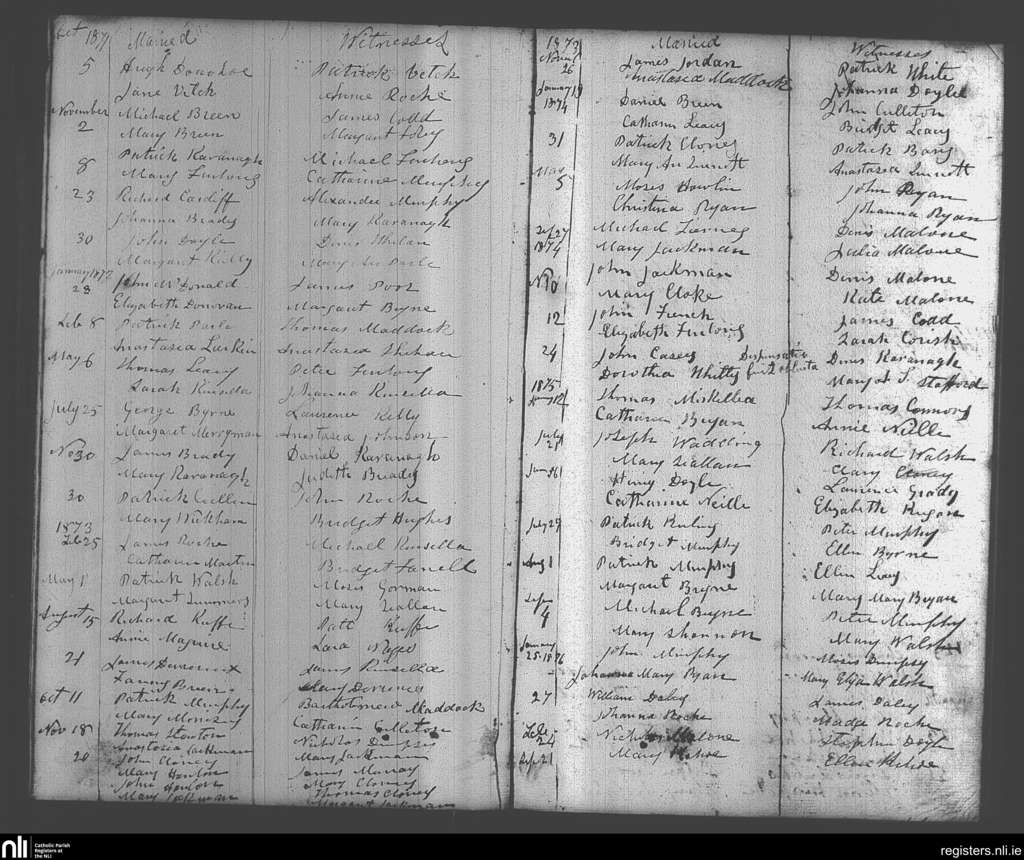 Oct 1871 Married Witnesses
5 Hugh Donohoe Patrick Vetch
Jane Vitch Annie Roche
November Michael Breen James Codd
2 Mary Breen Margaret Foley
Patrick Kavanagh Michael
8 Mary Furlong Catharine Murphy
23 Richard Cardiff Alexander Murphy
Johanna Brady Mary Kavanagh
30 John Doyle Denis Whelan
Margaret Kelly Mary
January 1872 John McDonald James Poor
28 Elizabeth Donovan Margaret Byrne
Feb 8 Patrick Parle Thomas Maddock
Anastasia Larkin Anastasia
May 6 Thomas Leary Peter Furlong
Sarah Kinsella Johanna Kinsella
July 25 George Byrne Laurence Kelly
Margaret Merryman Anastasia Johnson
No 30 James Brady Daniel Kavanagh
Mary Kavanagh Judith Brady
30 Patrick Cullen John Roche
Mary Wickham Bridget Hughes
1873
Feb 25 James Roche Michael Kinsella
Catharin Martin Bridget Farell
May 1 Patrick Walsh Moses Gorman
Margaret Summers Mary
August 15 Richard Kuffe Patt Kuffe
Annie Maguire
21 James James Kinsella
Fanny Breen Mary
Oct 11 Patrick Murphy Bartholomew Maddock
Mary Catharin Culleton
Nov 18 Thomas Nicholas Dempsey
Anastasia Jackman Mary Jackman
20 John Cloney James Murray
Mary Howlin Mary Cloney
John Howlon Thomas Cloney
Mary Jackman Margaret Jackman
1873 Married Witnesses
26 James Jordan Patrick White
Anastasia Maddock Johanna Doyle
January 19
1874 Daniel Breen John Culleton
Catharin Leary Bridget Leary
31 Patrick Cloney Patrick Barry
Mary An Sinnott Anastasia Sinnott
May
5 Moses Howlin John Ryan
Christina Ryan Johanna Ryan
Sep 27 Michael Denis Malone
1874 Mary Jackman Julia Malone
John Jackman Denis Malone
Mary Cloke Kate Malone
12 John French James Codd
Elizabeth Furlong Sarah Corish
24 John Casey Dispensatio Denis Kavanagh
Dorothea Whitty Margt S. Stafford
1875
Thomas Miskella Thomas Connors
Catharin Bryan Annie Neille
July
21 Joseph Wadding Richard Walsh
Mary Mary
Henry Doyle Laurence Grady
Catharine Neille Elizabeth
July 29 Patrick Peter Murphy
Bridget Murphy Ellen Byrne
Aug 1 Patrick Murphy Ellen Leary
Margaret Byrne Mary Mary Bryan
4 Michael Byrne Peter Murphy
Mary Shannon Mary Walsh
January
25 1876 John Murphy Moses Dempsey
Mary Ryan Mary Eliza Walsh
27 William Daley James Daley
Johanna Roche Roche
Feb
24 Malone Stephen Doyle
Sep 21 Mary Kehoe Ellen Kehoe
nli Catholic Parish
Registers at
the NLI
registers.nli.ie